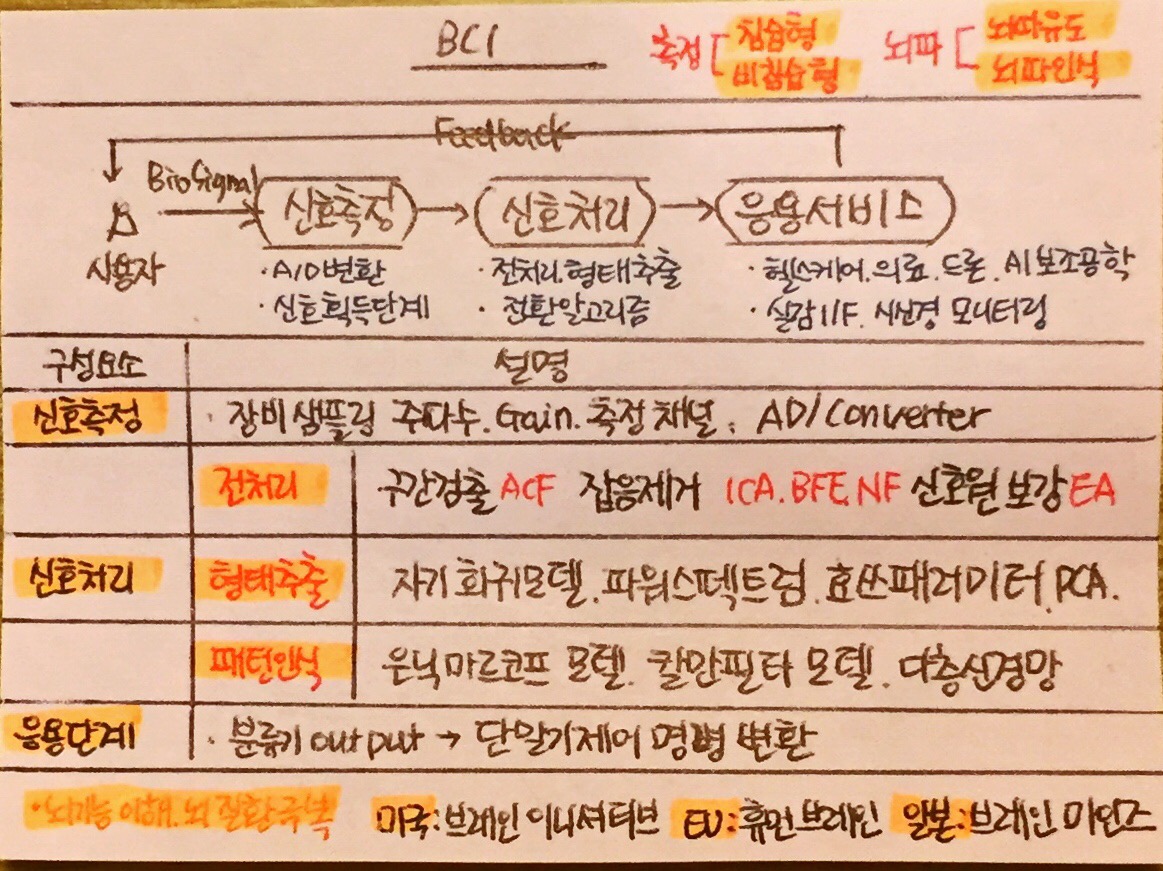 BCI
측정 [ 침습형
비침습형
뇌파 [ 뇌파유도
뇌파인식
Feedback
BioSignal
사용자
신호측정
· A/D변환
· 신호획득단계
신호처리
· 전처리. 형태추출
· 전환알고리즘
응용서비스
· 헬스케어. 의료. 드론. AI보조공학
· 실감I/F. 시신경 모니터링
구성요소 설명
신호측정 · 장비샘플링 주파수. Gain. 측정채널. AD/Converter
전처리 구간검출 ACF 잡음제거 ICA. BFE. NF 신호원 보강 EA
신호처리 형태추출 자기회귀모델. 파워스펙트럼. 효쓰패러미터. PCA.
패턴인식 은닉마르코프 모텔. 칼만필타 모텔. 다층신경망
응용단계 · 분류기 output → 단말기제어 명령 변환
· 뇌기능 이해. 뇌 질환극복 미국: 브레인이니셔티브 EU: 휴먼브레인 일본: 브레인 마인즈